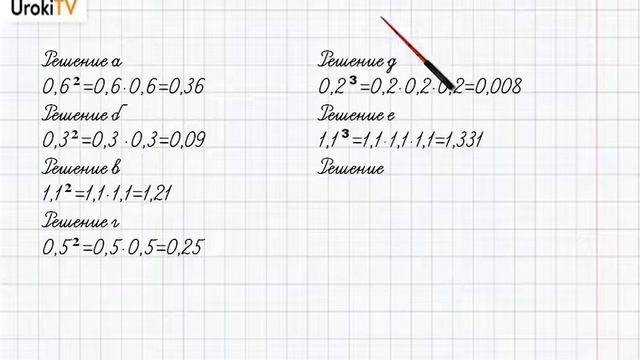 UrokiTV
Решение а
0,6²=0,6·0,6=0,36
Решение б
0,3²=0,3·0,3=0,09
Решение в
1,1²=1,1·1,1=1,21
Решение г
0,5²=0,5·0,5=0,25
Решение д
0,2³=0,2·0,2·0,2=0,008
Решение е
1,1³=1,1·1,1·1,1=1,331
Решение